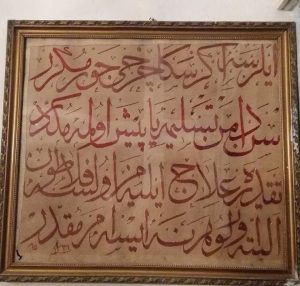 ایلرسه اگر سكا چرخ جور مكرر
سن دامن تسلیمه یاپیش اولمه مكدر
تقدیره علاج ایلیه مز اولسه فلاطون
البته اولور هر نه ایسه امر مقدر